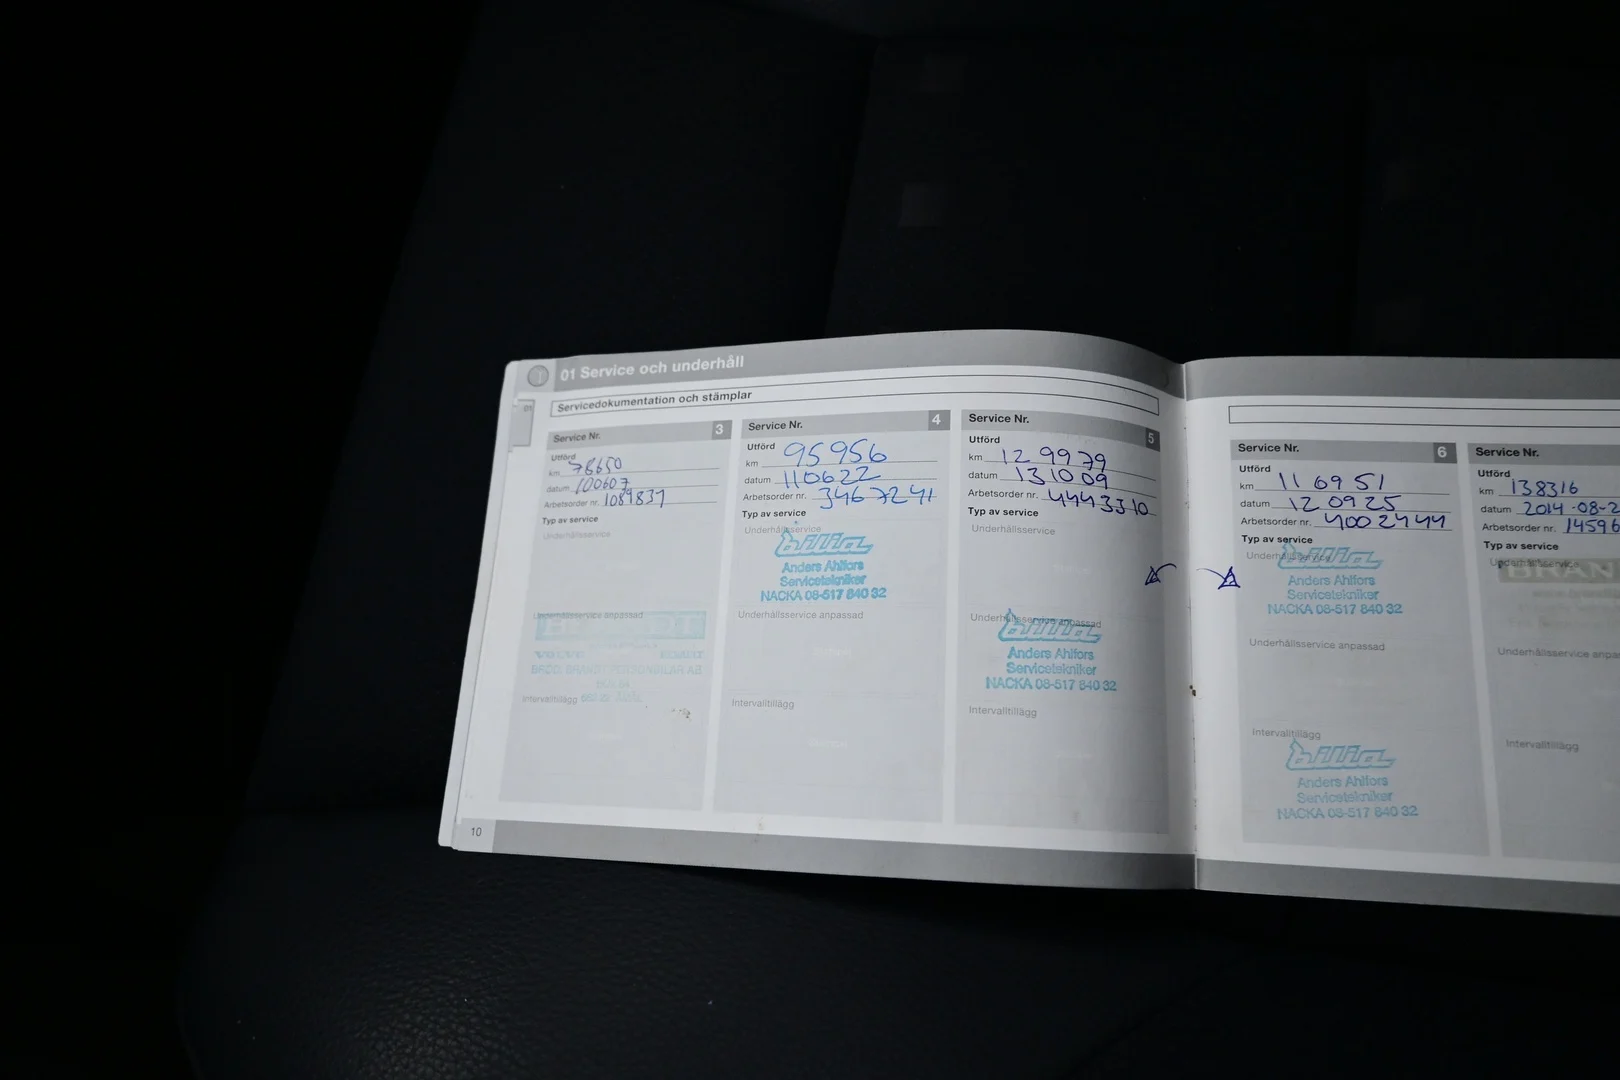 01 Service och underhåll
01
Servicedokumentation och stämplar
Service Nr. 3
Utförd
km 78650
datum 100607
Arbetsorder nr. 1089837
Typ av service
Underhållsservice
Underhållsservice anpassad
VOLVO RENAULT
Intervalltillägg
Service Nr. 4
Utförd
km 95956
datum 110622
Arbetsorder nr. 3467241
Typ av service
Underhållsservice
bilia
Anders Ahlfors
Servicetekniker
NACKA 08-517 840 32
Underhållsservice anpassad
Intervalltillägg
Service Nr. 5
Utförd
km 129979
datum 131009
Arbetsorder nr. 4443310
Typ av service
Underhållsservice
Underhållsservice anpassad
bilia
Anders Ahlfors
Servicetekniker
NACKA 08-517 840 32
Intervalltillägg
10
Service Nr. 6
Utförd
km 116951
datum 120925
Arbetsorder nr. 4002444
Typ av service
Underhållsservice
bilia
Anders Ahlfors
Servicetekniker
NACKA 08-517 840 32
Underhållsservice anpassad
Intervalltillägg
bilia
Anders Ahlfors
Servicetekniker
NACKA 08-517 840 32
Service Nr.
Utförd
km 138316
datum 2014-08-2
Arbetsorder nr. 14596
Typ av service
Underhållsservice
BRAN
Underhållsservice anpa
Intervalltillägg